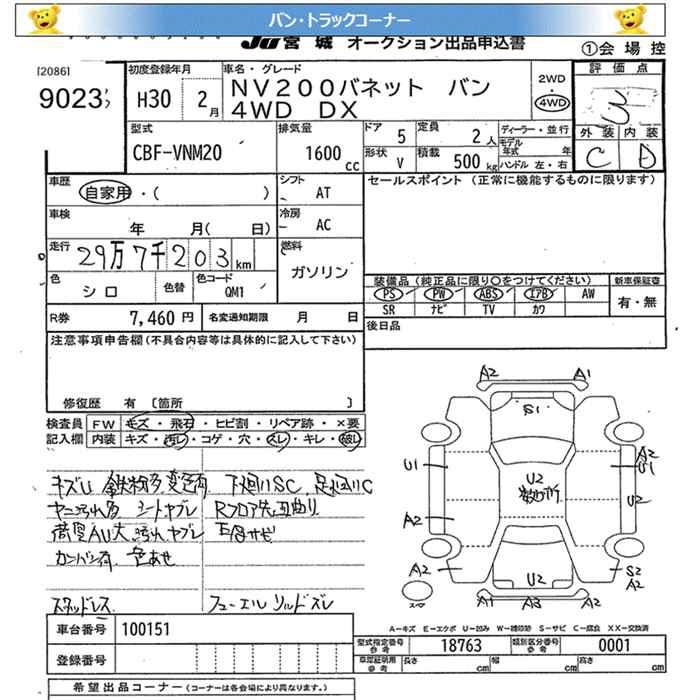 バン・トラックコーナー
JU 宮城 オークション出品申込書 ①会場控
[2086]
9023
初度登録年月
H30 2月
車名・グレード
NV200バネット バン
4WD DX
2WD
4WD
評価点
3
外装 内装
C D
型式
CBF-VNM20
排気量
1600cc
ドア 5
定員 2人
形状 V
積載 500kg
ディーラー・並行
モデル年式 年
ハンドル 左・右
車歴 自家用・( )
シフト AT
セールスポイント (正常に機能するものに限ります)
車検 年 月( 日)
冷房 AC
走行 29万7千203km
燃料 ガソリン
色 シロ 色替 色コード QM1
装備品(純正品に限り○をつけてください) 新車保証書
PS PW ABS エアB AW 有・無
SR ナビ TV カワ
R券 7,460円 名変通知期限 月 日
後日品
注意事項申告欄(不具合内容等は具体的に記入して下さい)
修復歴 有 [箇所 ]
検査員 FW キズ・飛石・ヒビ割・リペア跡・×要
記入欄 内装 キズ・汚レ・コゲ・穴・スレ・キレ・破レ
キズU 下廻りSC
シートヤブレ
荷室AU大 汚れ ヤブレ 下廻サビ
カンバン有 色あせ
スタッドレス
A2 A1
S1
U1 U2 A2 U1
U2
A2
S2
A2 U2 A2
A1 A3 A2
スペア
A=キズ E=エクボ U=凹み W=補修跡 S=サビ C=腐食 XX=交換済
車台番号 100151
型式指定番号 参考 18763 類別区分番号 参考 0001
登録番号
車庫証明用 参考 長さ cm 幅 cm 高さ cm
希望出品コーナー(コーナーは各会場により異なります。)